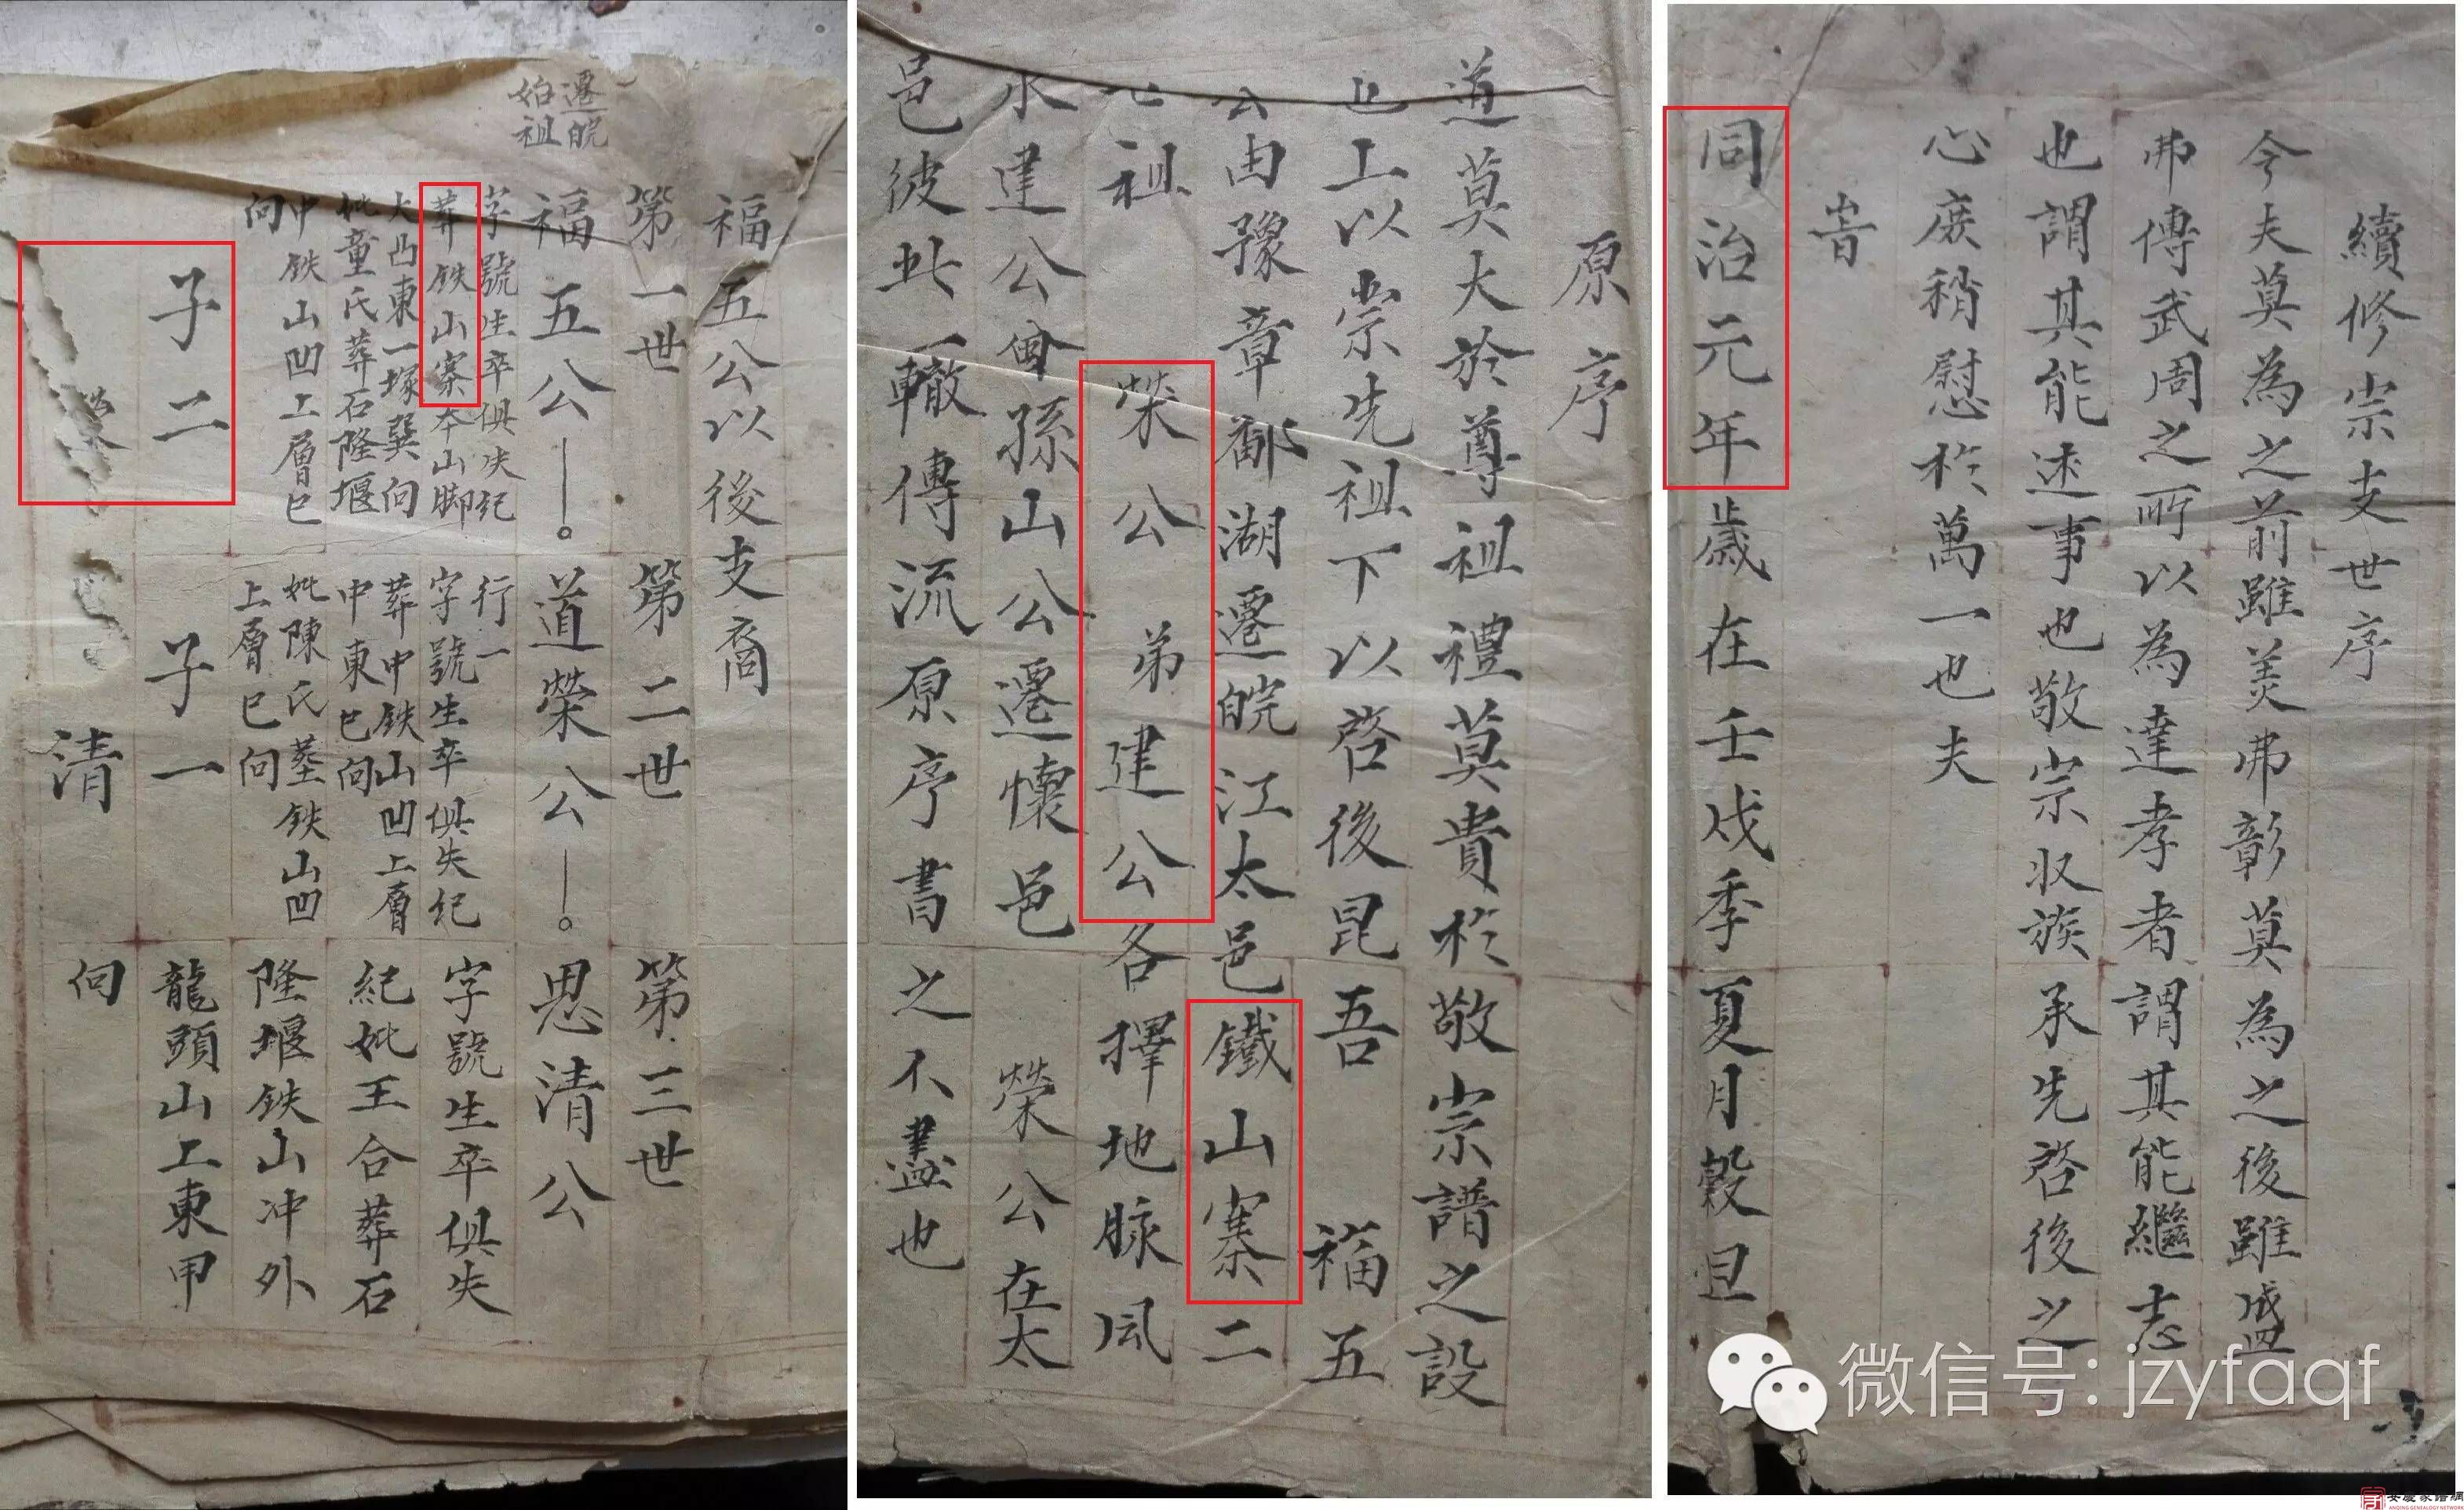 續修宗支世序
今夫莫為之前雖美弗彰莫為之後雖盛
弗傳武周之所以為達孝者謂其能繼志
也謂其能述事也敬宗収族承先啓後之
心庻稍慰於萬一也夫
旹
同治元年歲在壬戌季夏月榖旦
原序
道莫大於尊祖禮莫貴於敬宗譜之設
也上以崇先祖下以啓後昆吾 福五
公由豫章鄱湖遷皖江太邑鐵山寨二
祖 榮公 弟建公各擇地脉風
水建公曾孫山公遷懷邑 榮公在太
邑彼此一轍傳流原序書之不盡也
福五公以後支裔
第一世 第二世 第三世
遷皖
始祖
福五公 道榮公 思清公
字號生卒俱失紀
葬鉄山寨本山脚
大凸東一塚巽向
妣童氏葬石隆堰
中鉄山凹上層巳
向
子二
榮
行一
字號生卒俱失紀
葬中鉄山凹上層
中東巳向
妣陳氏葬鉄山凹
上層巳向
子一
清
字號生卒俱失
紀妣王合葬石
隆堰鉄山冲外
龍頭山上東甲
向
微信号: jzyfaqf
安慶家譜網